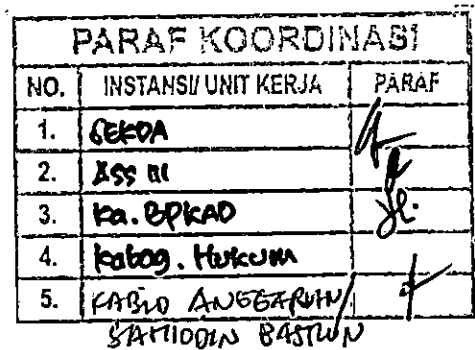 PARAF KOORDINASI
NO. INSTANSI/ UNIT KERJA PARAF
1. SEKDA
2. ASS III
3. Ka. BPKAD
4. Kabag. Hukum
5. KABID ANGGARAN/